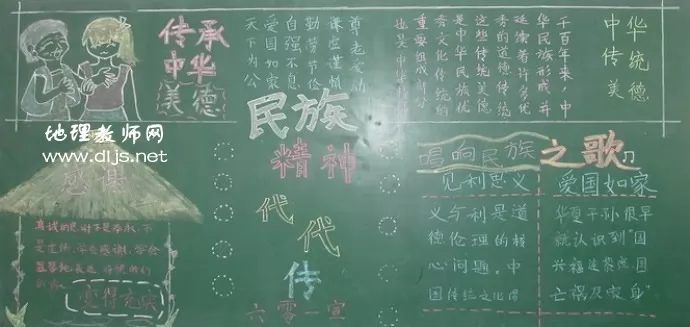 传承
中华
美德
尊老爱幼
谦虚谨慎
勤劳节俭
自强不息
爱国如家
天下为公
中华
传统
美德
千百年来，中
华民族形成并
延续着许多优
秀的道德传统
这些传统美德
是中华民族优
秀文化传统的
重要组成部分
也是中华
民族
精神
代
代
传
六零一宣
地理教师网
www.dljs.net
学会感谢，学会
唱响民族之歌
见利思义
义与利是道
德伦理的核
心问题。中
国传统文化得
爱国如家
华夏子孙很早
就认识到"国
兴福连黎庶，国
亡祸及家身"